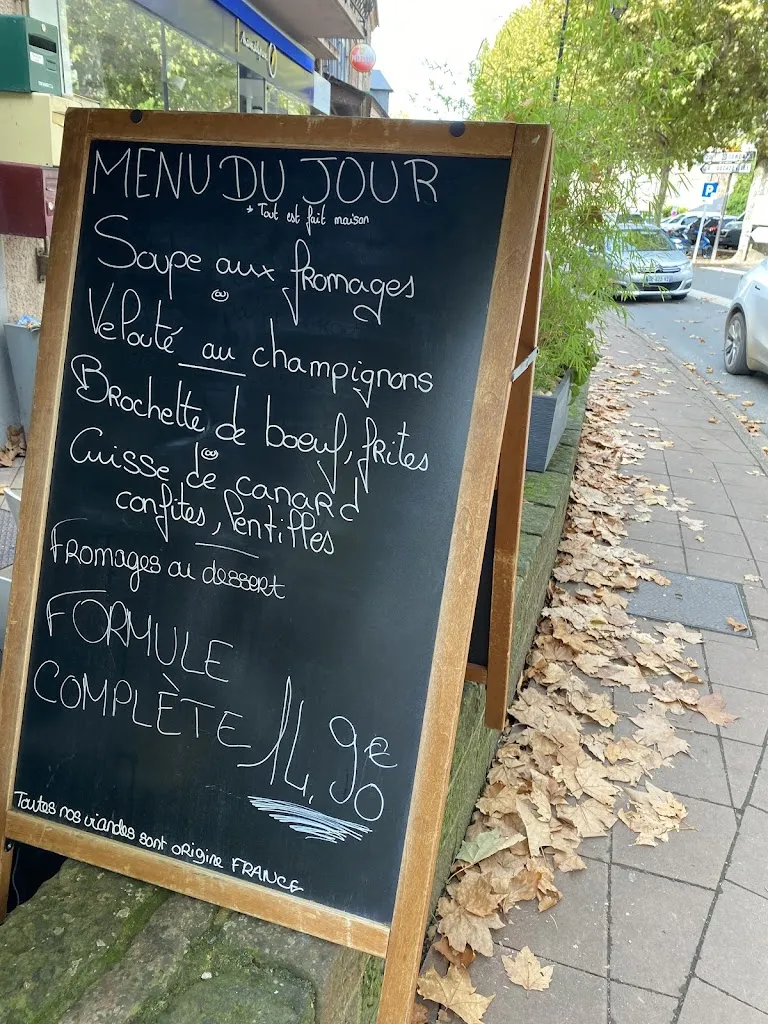 MENU DU JOUR
* Tout est fait maison
Soupe aux fromages
ou
Velouté au champignons
Brochette de boeuf, frites
ou
Cuisse de canard
confites, lentilles
Fromages ou dessert
FORMULE
COMPLÈTE 14,90€
Toutes nos viandes sont origine FRANCE
P